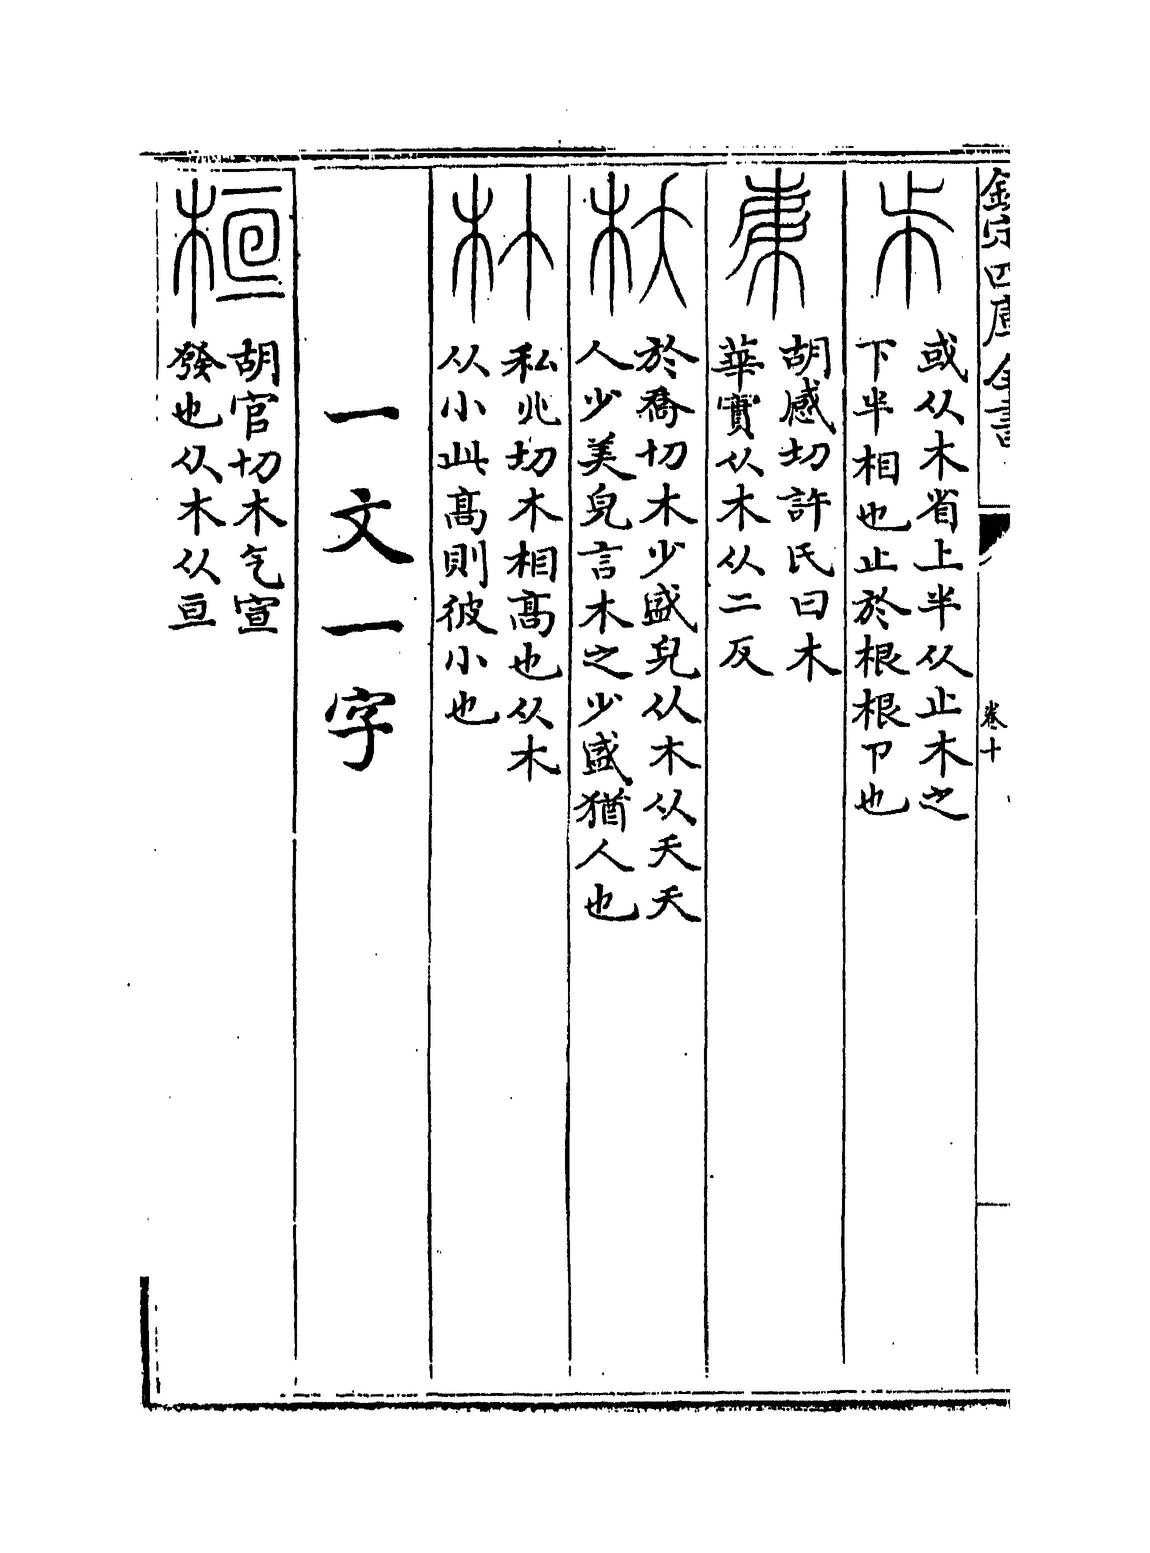 欽定四庫全書
卷十
或从木省上半从止木之
下半相也止於根根卩也
胡感切許氏曰木
華實从木从二反
枖
於喬切木少盛皃从木从夭夭
人少美皃言木之少盛猶人也
私兆切木相髙也从木
从小此髙則彼小也
一文一字
桓
胡官切木气宣
發也从木从亘